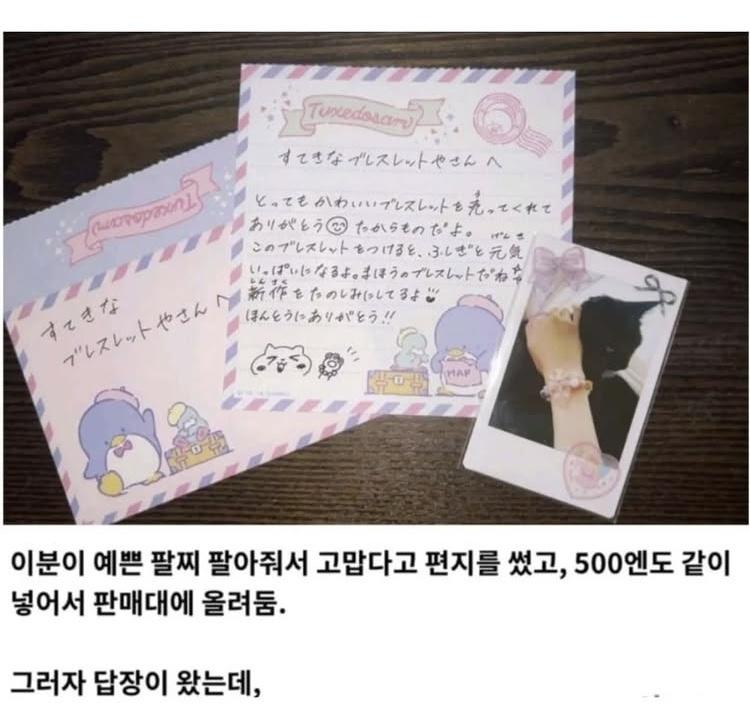 Tuxedosam
すてきなブレスレットやさんへ
とってもかわいいブレスレットを売ってくれて
ありがとう たからものだよ。
このブレスレットをつけると、ふしぎと元気
いっぱいになるよ。まほうのブレスレットだね
新作をたのしみにしてるよ
ほんとうにありがとう!!
MAP
Tuxedosam
すてきな
ブレスレットやさんへ
이분이 예쁜 팔찌 팔아줘서 고맙다고 편지를 썼고, 500엔도 같이
넣어서 판매대에 올려둠.
그러자 답장이 왔는데,